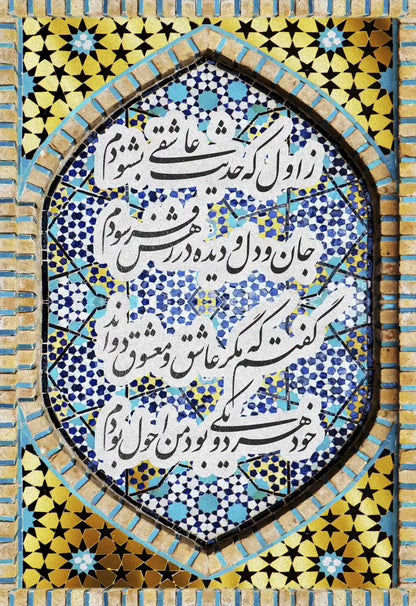 ز اول که حدیث عاشقی بشنودم
جان و دل و دیده در رهش فرسودم
گفتم که مگر عاشق و معشوق دواند
خود هر دو یکی بود من احول بودم